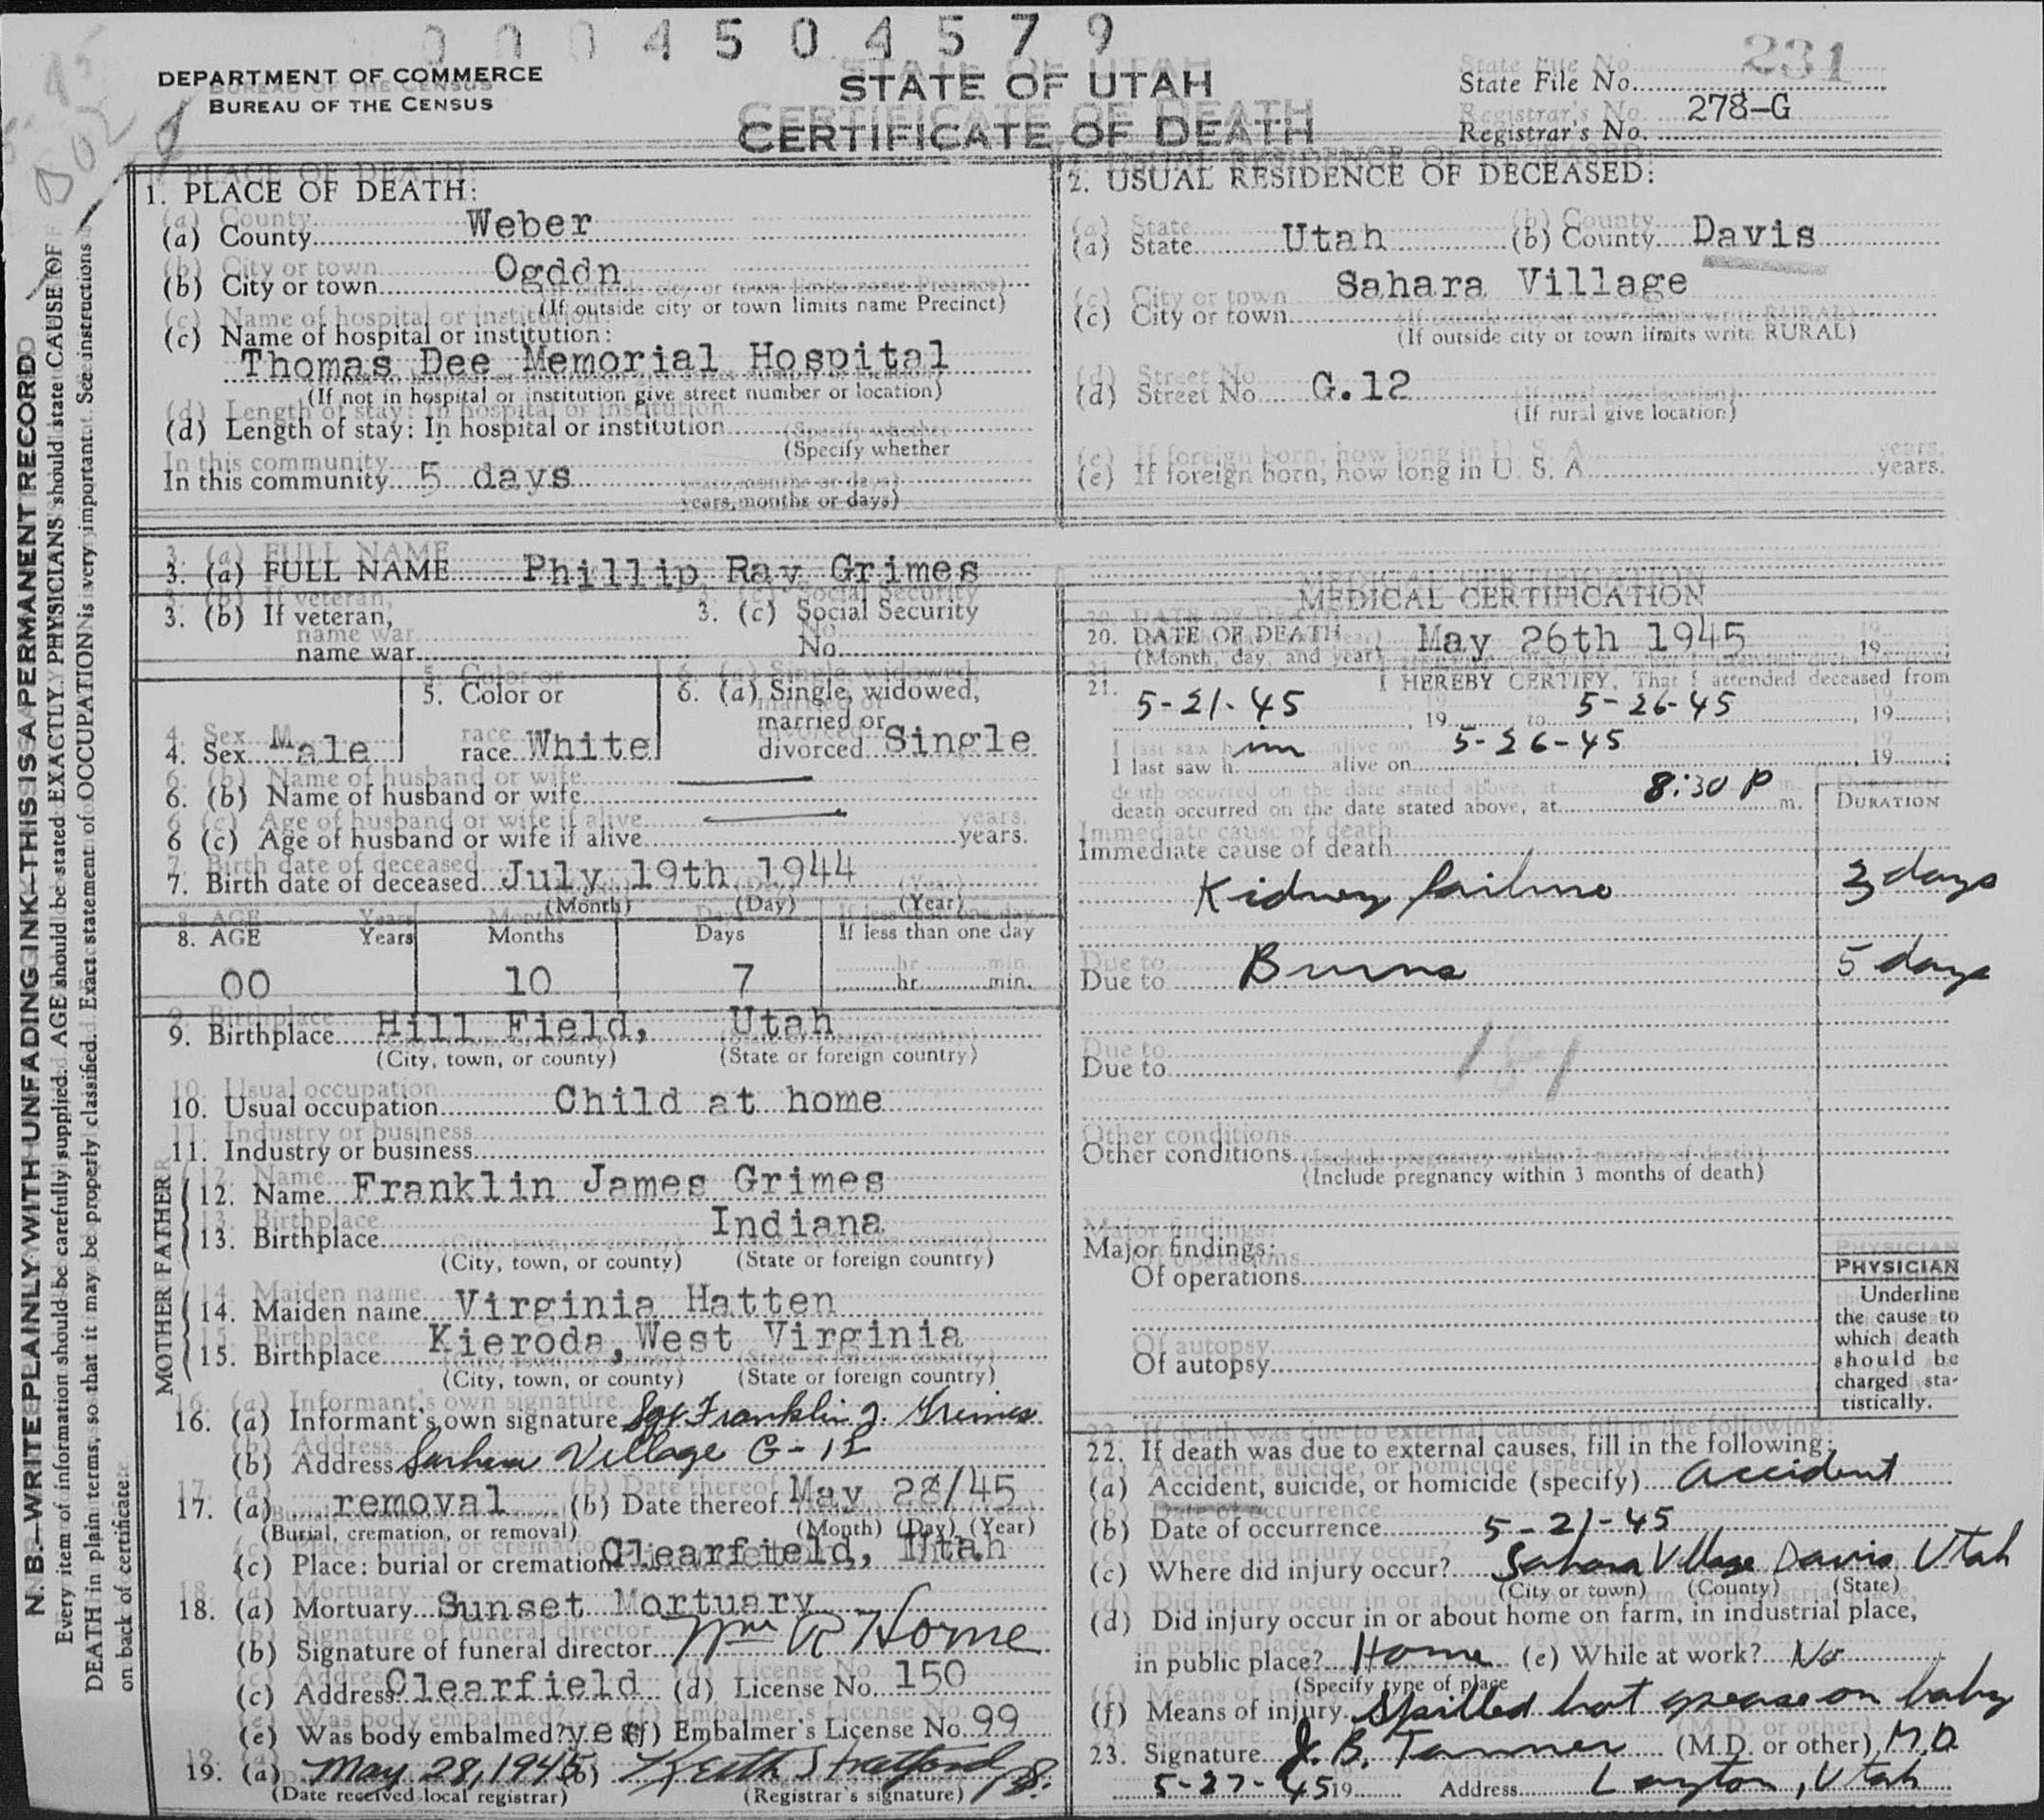 0 0 0 4 5 0 4 5 7 9
DEPARTMENT OF COMMERCE
BUREAU OF THE CENSUS
STATE OF UTAH
CERTIFICATE OF DEATH
State File No. 231
Registrar's No. 278-G
N. B.—WRITE PLAINLY WITH UNFADING INK—THIS IS A PERMANENT RECORD
Every item of information should be carefully supplied. AGE should be stated EXACTLY. PHYSICIANS should state CAUSE OF
DEATH in plain terms, so that it may be properly classified. Exact statement of OCCUPATION is very important. See instructions
on back of certificate.
1. PLACE OF DEATH:
(a) County Weber
(b) City or town Ogddn
(If outside city or town limits name Precinct)
(c) Name of hospital or institution:
Thomas Dee Memorial Hospital
(If not in hospital or institution give street number or location)
(d) Length of stay: In hospital or institution
(Specify whether
In this community 5 days
years, months or days)
2. USUAL RESIDENCE OF DECEASED:
(a) State Utah (b) County Davis
(c) City or town Sahara Village
(If outside city or town limits write RURAL)
(d) Street No G.12
(If rural give location)
(e) If foreign born, how long in U. S. A years.
3. (a) FULL NAME Phillip Ray Grimes
3. (b) If veteran, name war
3. (c) Social Security No.
4. Sex Male
5. Color or race White
6. (a) Single, widowed, married or divorced Single
6. (b) Name of husband or wife
6 (c) Age of husband or wife if alive years.
7. Birth date of deceased July 19th 1944
(Month) (Day) (Year)
8. AGE Years Months Days If less than one day
00 10 7 hr. min.
9. Birthplace Hill Field, Utah
(City, town, or county) (State or foreign country)
10. Usual occupation Child at home
11. Industry or business
FATHER
12. Name Franklin James Grimes
13. Birthplace Indiana
(City, town, or county) (State or foreign country)
MOTHER
14. Maiden name Virginia Hatten
15. Birthplace Kieroda, West Virginia
(City, town, or county) (State or foreign country)
16. (a) Informant's own signature Sgt. Franklin J. Grimes
(b) Address Sarhara Village G-12
17. (a) removal (b) Date thereof May 28/45
(Burial, cremation, or removal) (Month) (Day) (Year)
(c) Place: burial or cremation Clearfield, Utah
18. (a) Mortuary Sunset Mortuary
(b) Signature of funeral director Wm R Horne
(c) Address Clearfield (d) License No. 150
(e) Was body embalmed? yes (f) Embalmer's License No. 99
19. (a) May 28, 1945 (b) Keith Stratford
(Date received local registrar) (Registrar's signature)
MEDICAL CERTIFICATION
20. DATE OF DEATH May 26th 1945 19
(Month, day, and year)
21. I HEREBY CERTIFY, That I attended deceased from
5-21-45, 19 to 5-26-45, 19 ;
I last saw him alive on 5-26-45, 19 ;
death occurred on the date stated above, at 8:30 P m.
DURATION
Immediate cause of death
Kidney failure 3 days
Due to Burns 5 days
Due to
181
Other conditions
(Include pregnancy within 3 months of death)
Major findings:
Of operations
Of autopsy
PHYSICIAN
Underline
the cause to
which death
should be
charged sta-
tistically.
22. If death was due to external causes, fill in the following:
(a) Accident, suicide, or homicide (specify) accident
(b) Date of occurrence 5-21-45
(c) Where did injury occur? Sahara Village Davis Utah
(City or town) (County) (State)
(d) Did injury occur in or about home on farm, in industrial place,
in public place? Home (e) While at work? No
(Specify type of place
(f) Means of injury Spilled hot grease on baby
23. Signature J. B. Tanner (M.D. or other) M.D.
5-27-45 19 Address Layton, Utah